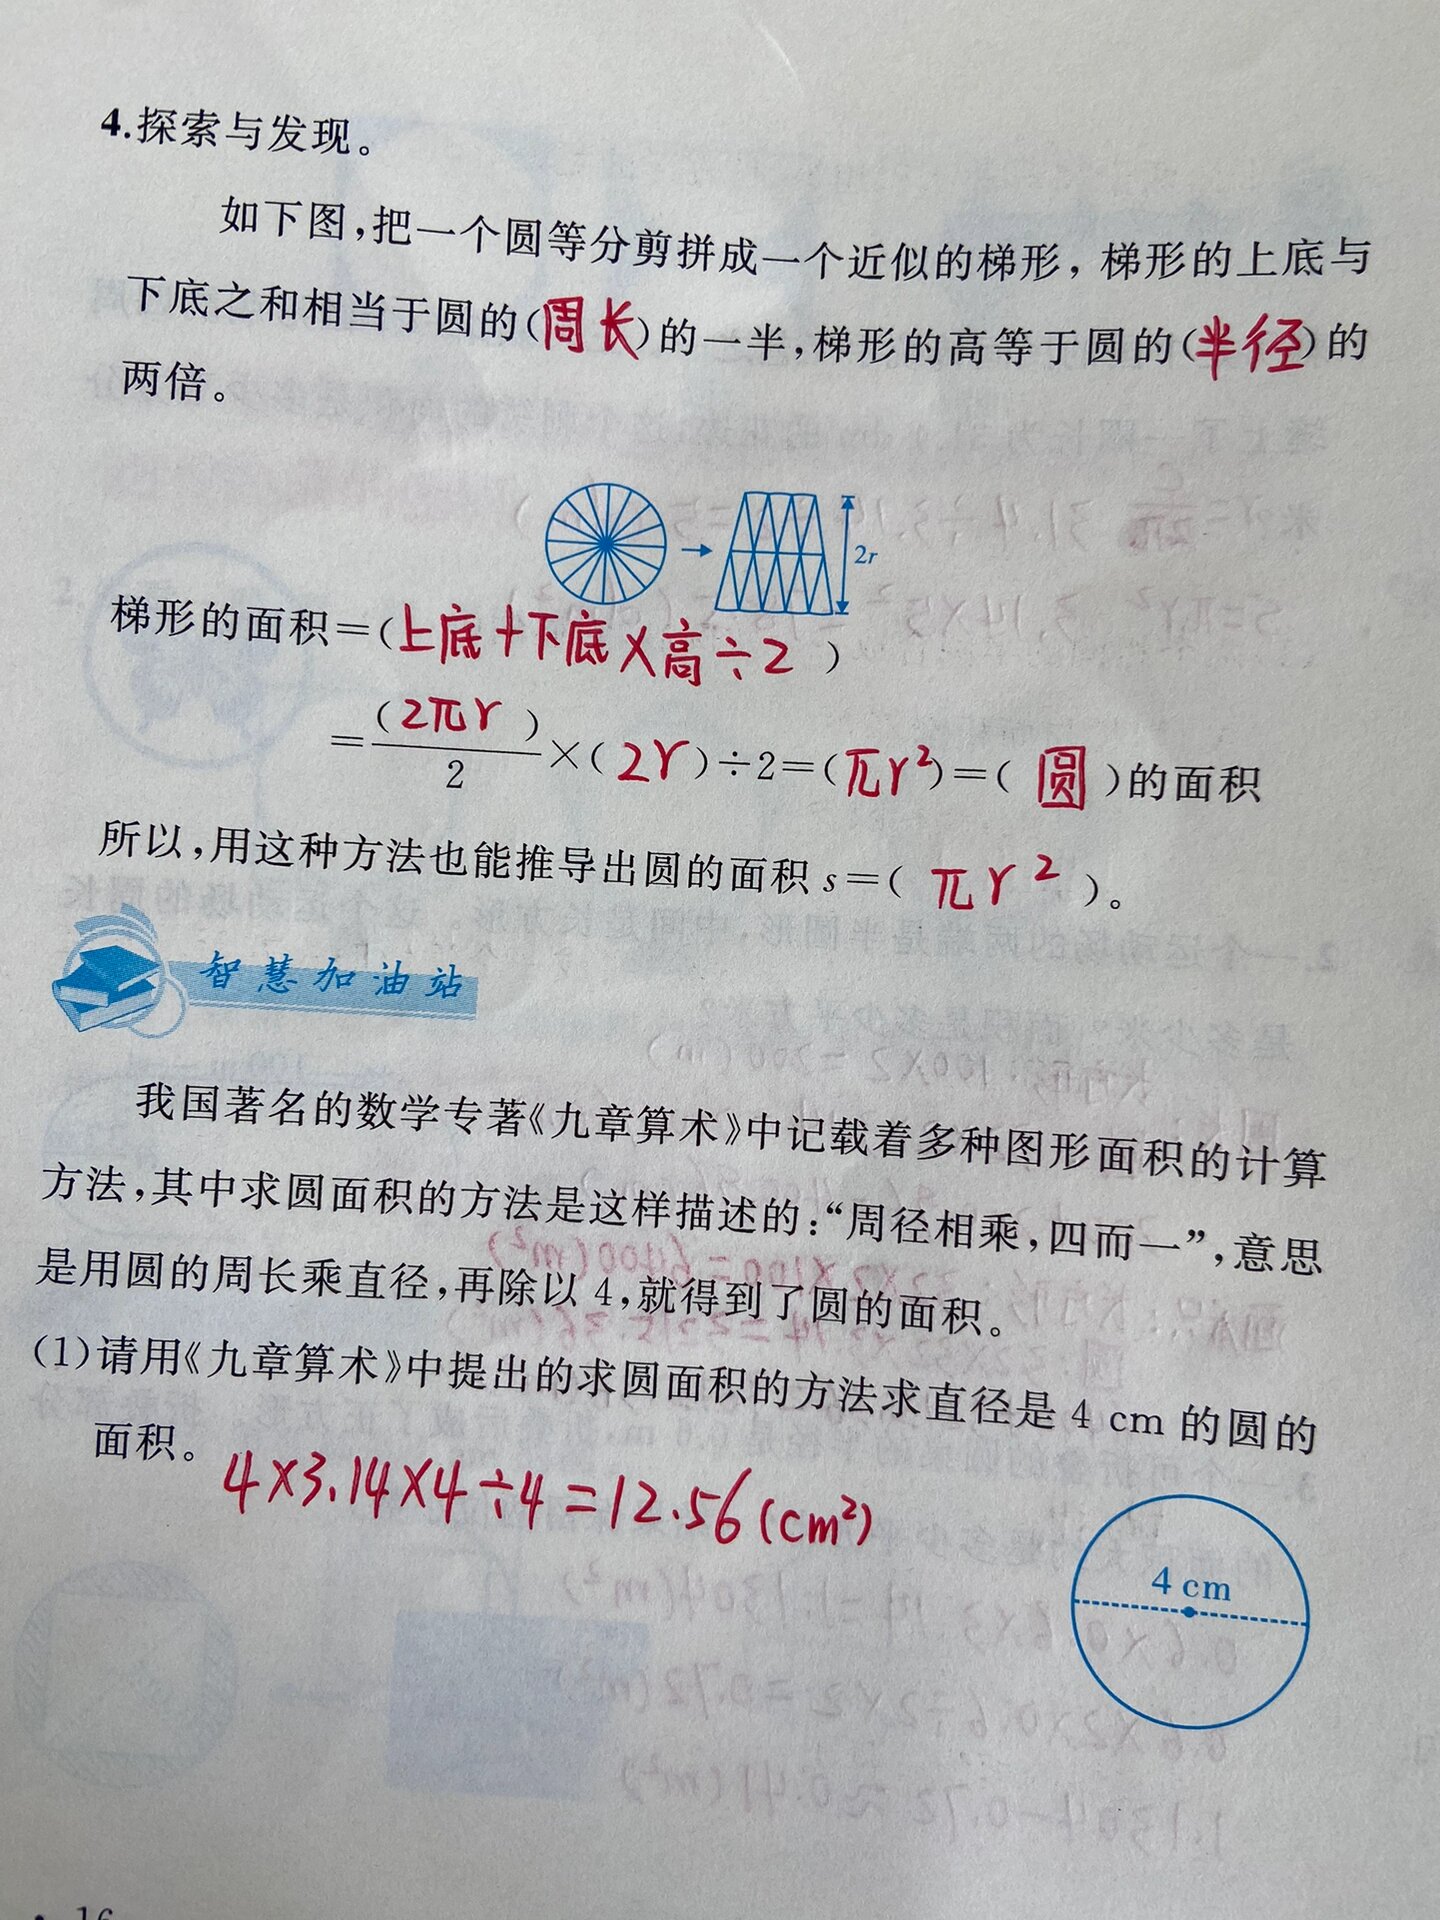 4.探索与发现。
如下图,把一个圆等分剪拼成一个近似的梯形,梯形的上底与
下底之和相当于圆的(周长)的一半,梯形的高等于圆的(半径)的
两倍。
2r
梯形的面积=(上底+下底×高÷2)
=(2πr)/2×(2r)÷2=(πr²)=(圆)的面积
所以,用这种方法也能推导出圆的面积 s=(πr²)。
智慧加油站
我国著名的数学专著《九章算术》中记载着多种图形面积的计算
方法,其中求圆面积的方法是这样描述的:“周径相乘,四而一”,意思
是用圆的周长乘直径,再除以 4,就得到了圆的面积。
(1)请用《九章算术》中提出的求圆面积的方法求直径是 4 cm 的圆的
面积。
4×3.14×4÷4=12.56(cm²)
4 cm